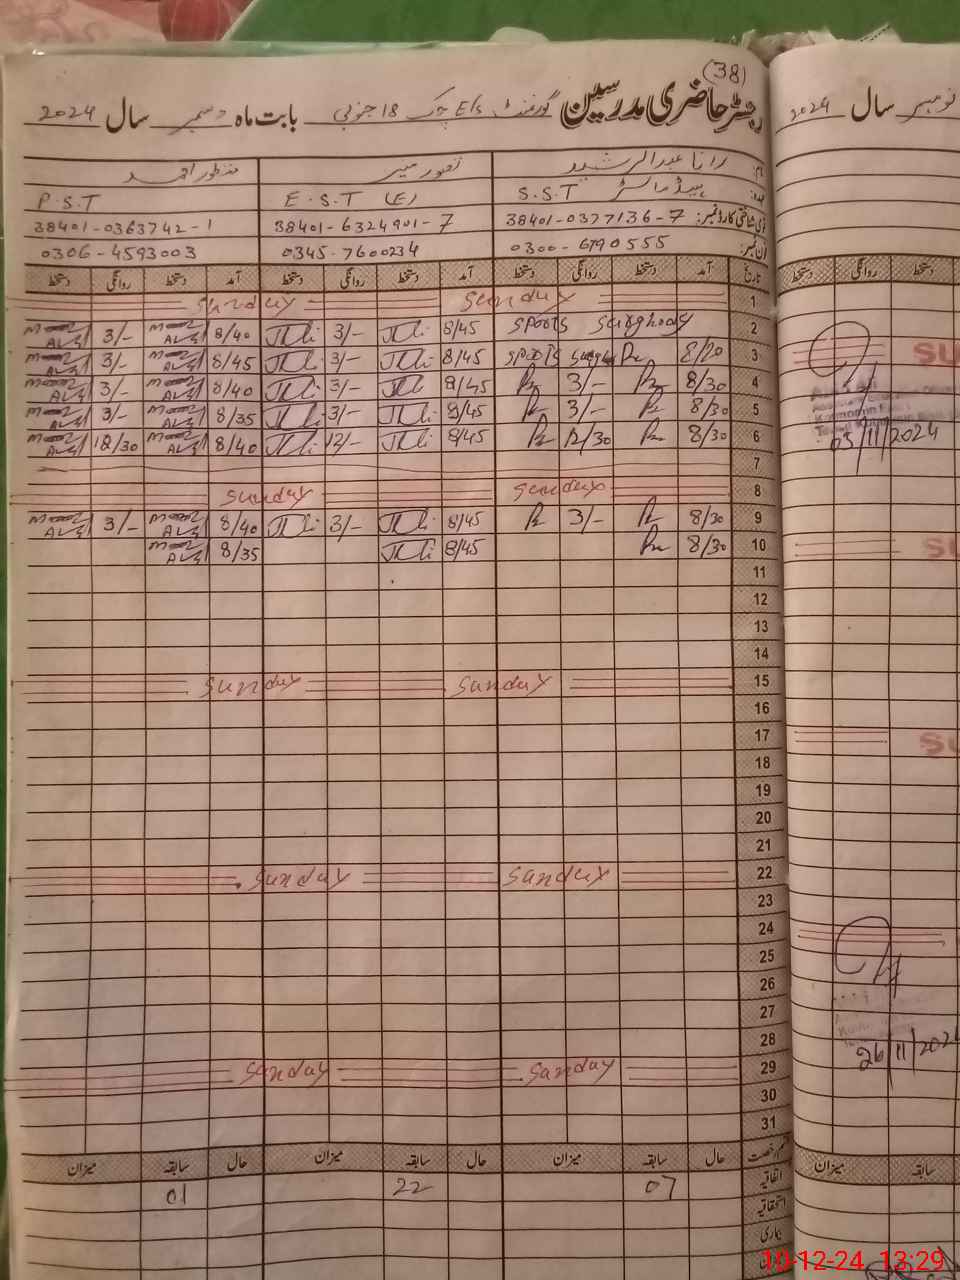 (38)
رجسٹر حاضری مدرسین گورنمنٹ E/s چک 18 جنوبی بابت ماہ دسمبر سال 2024
نومبر سال 2024
نام: رانا عبدالرشید تصور منیر منظور احمد
عہدہ: ہیڈماسٹر S.S.T E.S.T (E) P.S.T
قومی شناختی کارڈ نمبر: 38401-0377136-7 38401-6324901-7 38401-0363742-1
فون نمبر: 0300-6790555 0345-7600234 0306-4593003
تاریخ آمد دستخط روانگی دستخط آمد دستخط روانگی دستخط آمد دستخط روانگی دستخط
دستخط روانگی دستخط
1 sunday sunday
2 Spots Sarghody 8/45 3/- 8/40 3/-
3 8/20 Spots 8/45 3/- 8/45 3/-
4 8/30 3/- 8/45 3/- 8/40 3/-
5 8/30 3/- 8/45 3/- 8/35 3/-
6 8/30 12/30 8/45 12/- 8/40 12/30
7
8 sunday sunday
9 8/30 3/- 8/45 3/- 8/40 3/-
10 8/30 8/45 8/35
11
12
13
14
15 sunday sunday
16
17
18
19
20
21
22 sunday sunday
23
24
25
26
27
28
29 sunday sunday
30
31
قسم رخصت حال سابقہ میزان حال سابقہ میزان حال سابقہ میزان
اتفاقیہ 07 22 01
استحقاقیہ
بیماری
SU
05/11/2024
SU
SU
26/11/2024
سابقہ میزان
10-12-24 13:29